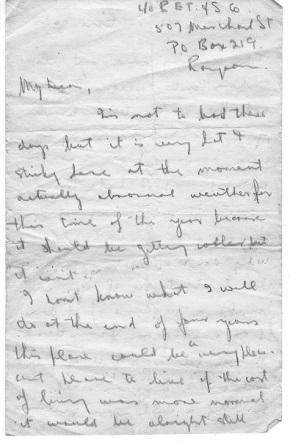 40 P ET. 4S G
507 Merchant St
PO Box 219
Rangoon.
My Dear,
Its not to bad these
days but it is very hot &
sticky here at the moment
actually abnormal weather for
this time of the year because
it should be getting colder but
it isn't
I wont know what I will
do at the end of four years
this place could be a very pleas-
ant place to live if the cost
of living was more normal
it would be alright still